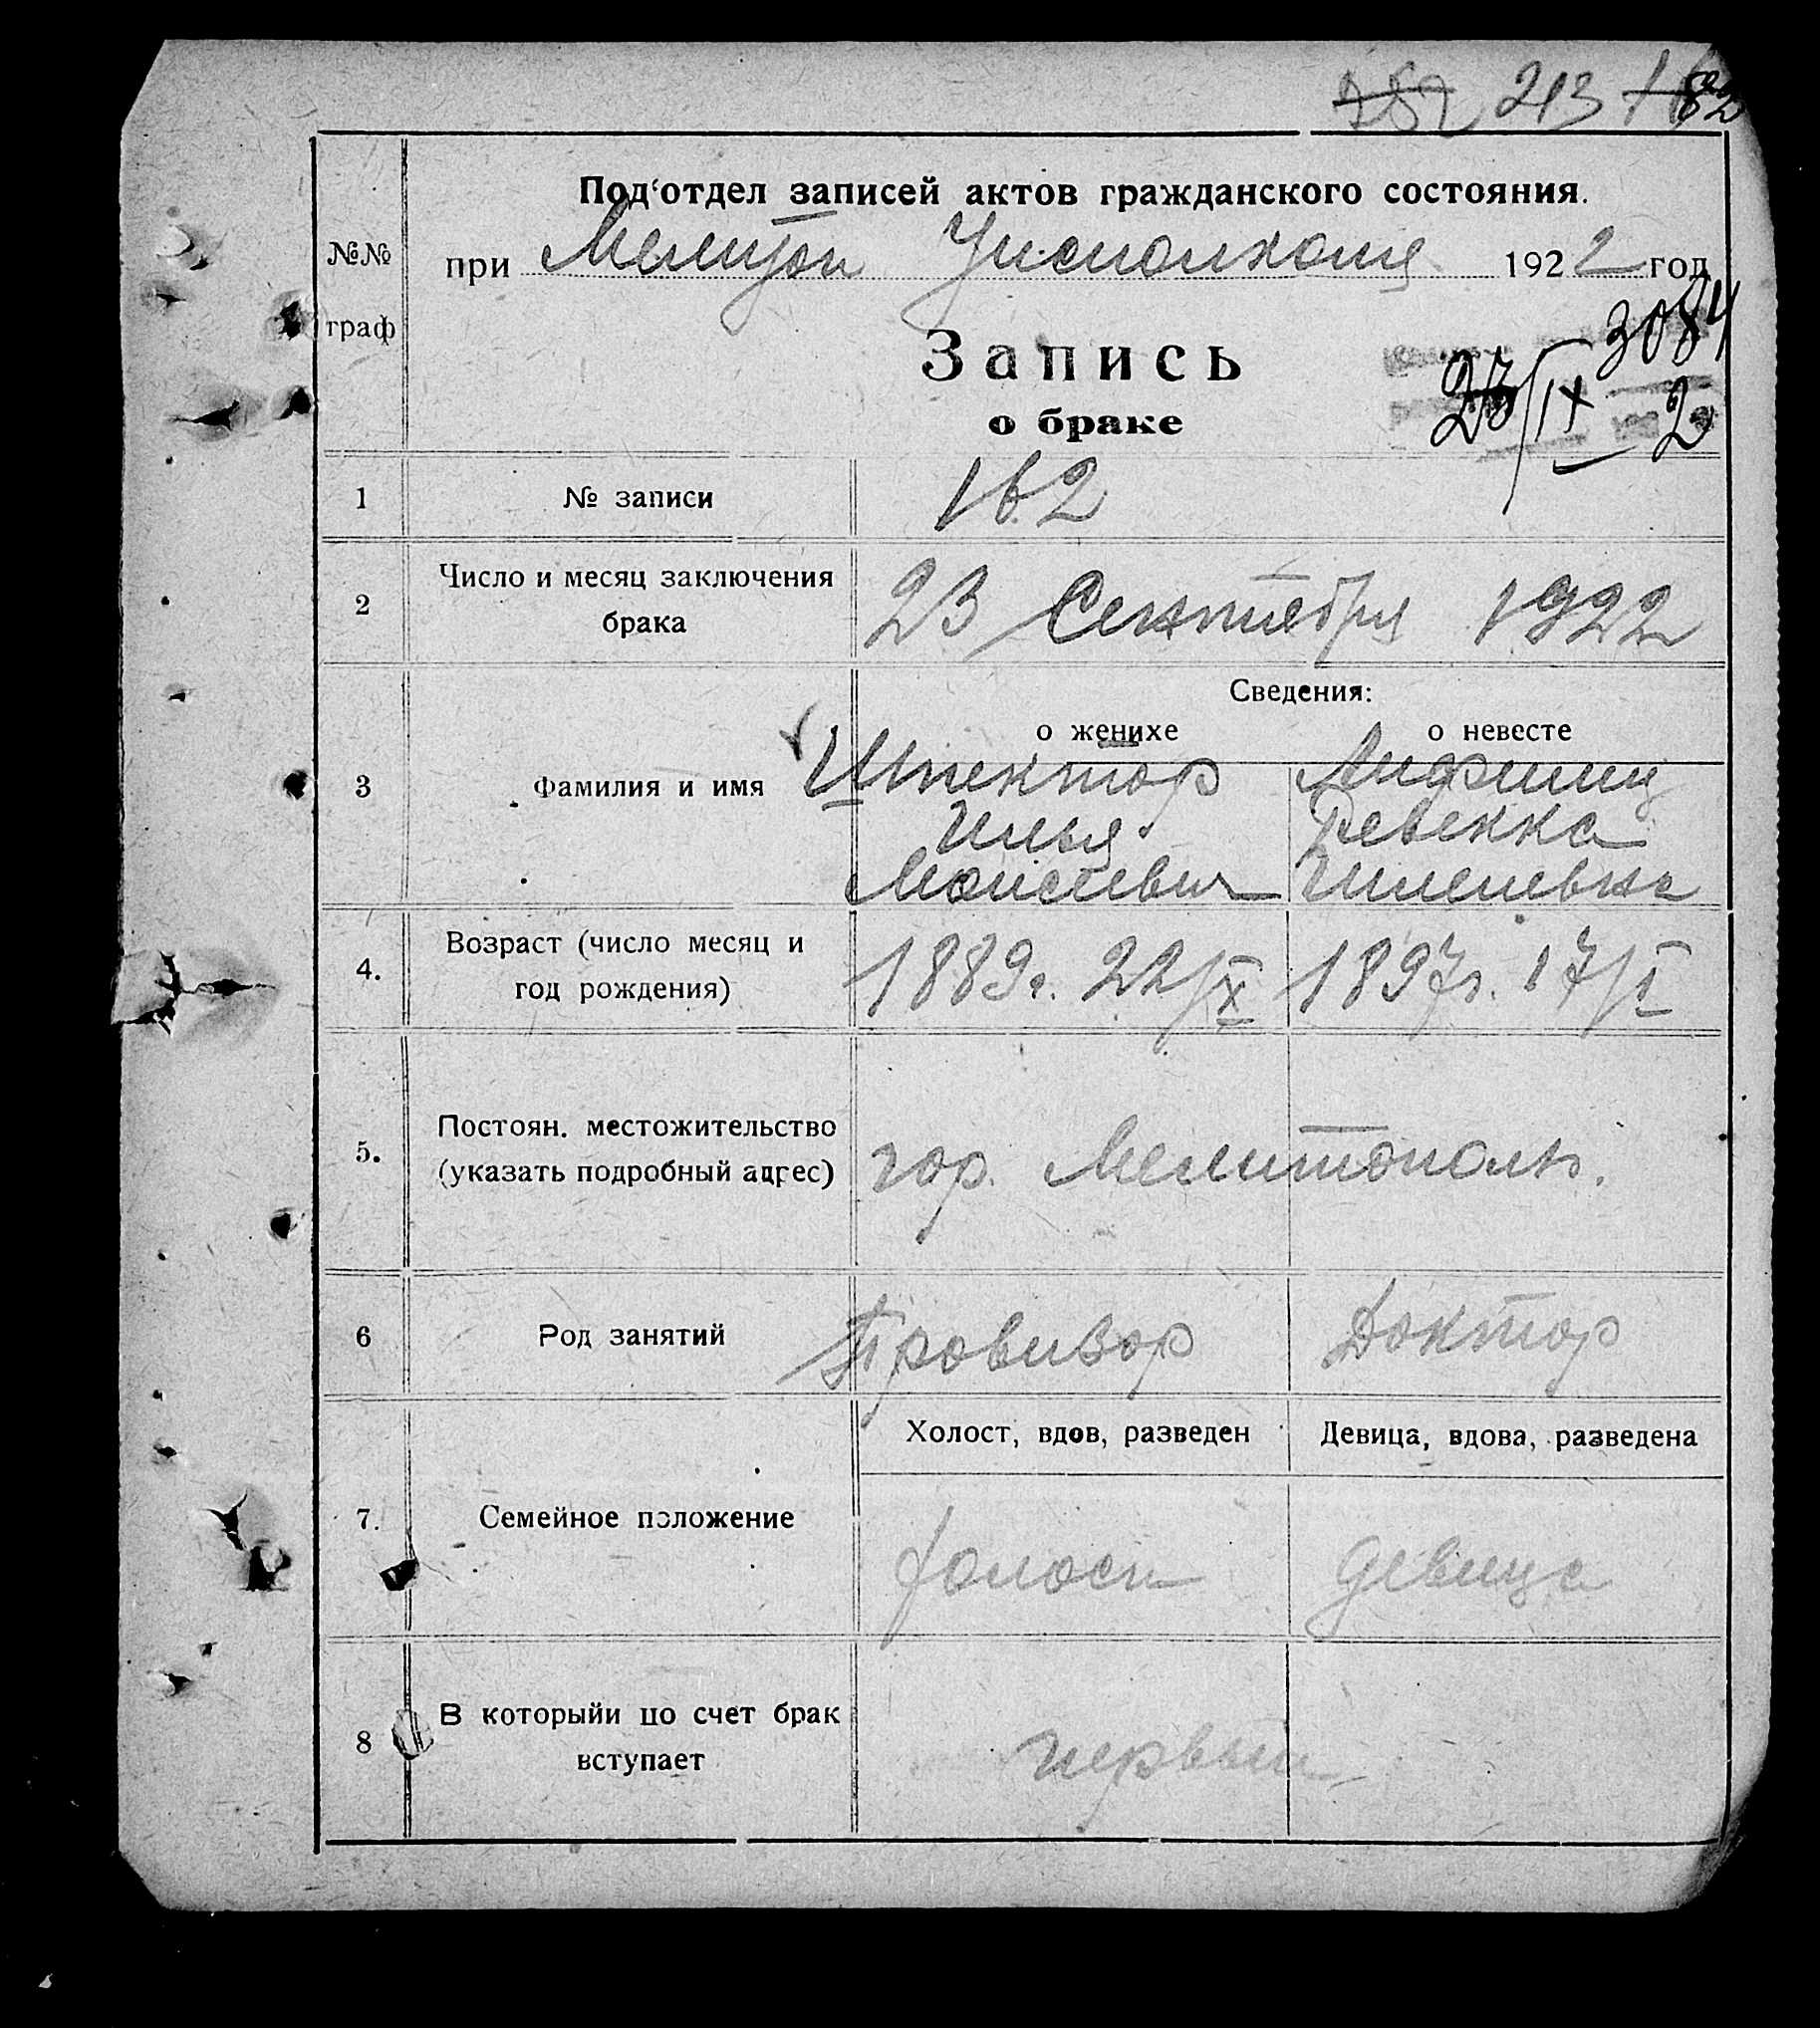 213
Под'отдел записей актов гражданского состояния.
№№ граф
при Мелитоп Уисполкоме 1922 год
3084
Запись
23/IX 2
о браке
1 № записи 162
2 Число и месяц заключения брака 23 Сентября 1922
Сведения:
о женихе о невесте
3 Фамилия и имя Шпектор Лифшиц
Илья Ревекка
Моисеевич
4. Возраст (число месяц и год рождения) 1889г. 22/IX 1897г. 17/I
5. Постоян. местожительство (указать подробный адрес) гор. Мелитополь.
6 Род занятий Провизор Доктор
Холост, вдов, разведен Девица, вдова, разведена
7. Семейное положение холост девица
8 В которыйи по счет брак вступает первый